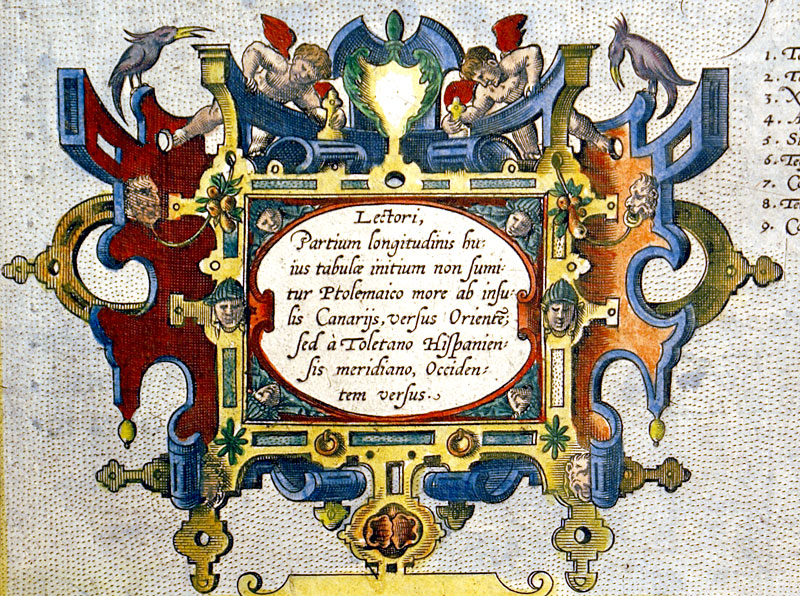 Lectori,
Partium longitudinis hu-
ius tabulæ initium non sumi-
tur Ptolemaico more ab insu-
lis Canarijs, versus Orientē;
sed à Toletano Hispanien-
sis meridiano, Occiden-
tem versus.
1.
2.
3.
4.
5.
6.
7.
8.
9.